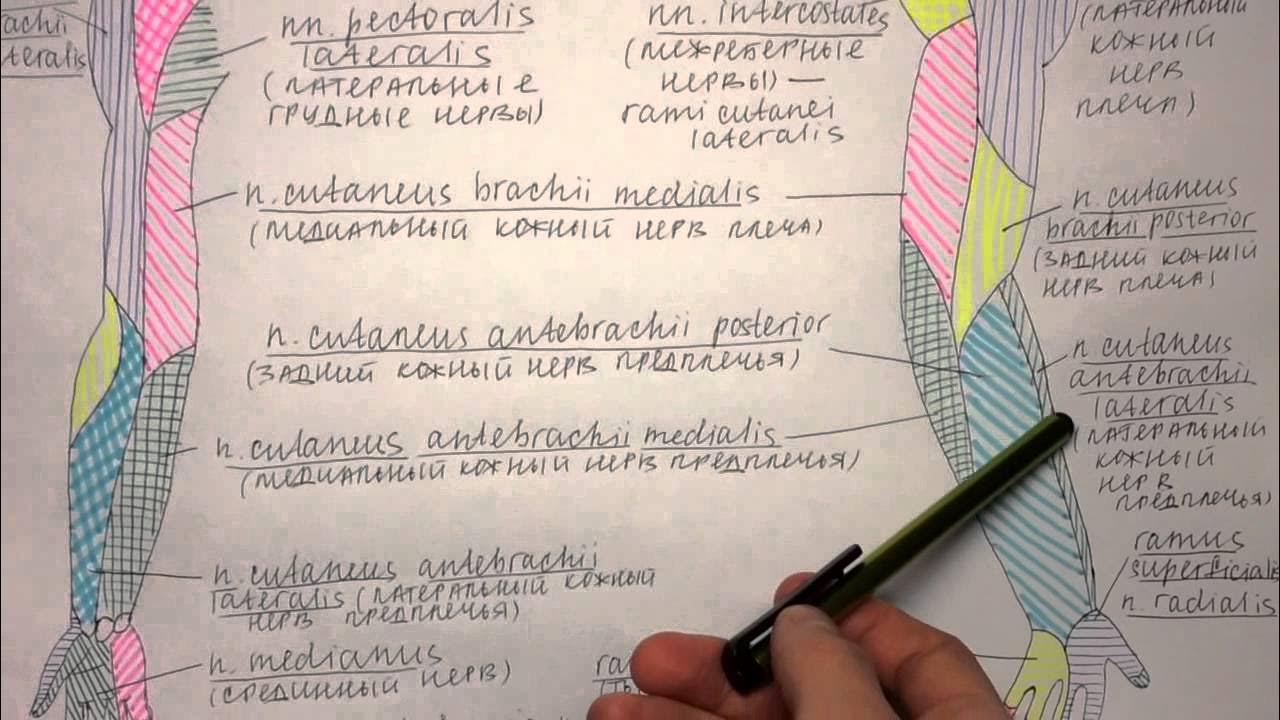 achii
teralis
nn. pectoralis
lateralis
(латеральные
грудные нервы)
nn. intercostales
(межреберные
нервы) —
rami cutanei
lateralis
(латеральный
кожный
нерв
плеча)
n. cutaneus brachii medialis
(медиальный кожный нерв плеча)
n. cutaneus
brachii posterior
(задний кожный
нерв плеча)
n. cutaneus antebrachii posterior
(задний кожный нерв предплечья)
n cutaneus
antebrachii
lateralis
(латеральный
кожный
нерв
предплечья)
n. cutaneus antebrachii medialis
(медиальный кожный нерв предплечья)
n. cutaneus antebrachii
lateralis (латеральный кожный
нерв предплечья)
ramus
superficialis
n. radialis
n. medianus
(срединный нерв)
ra